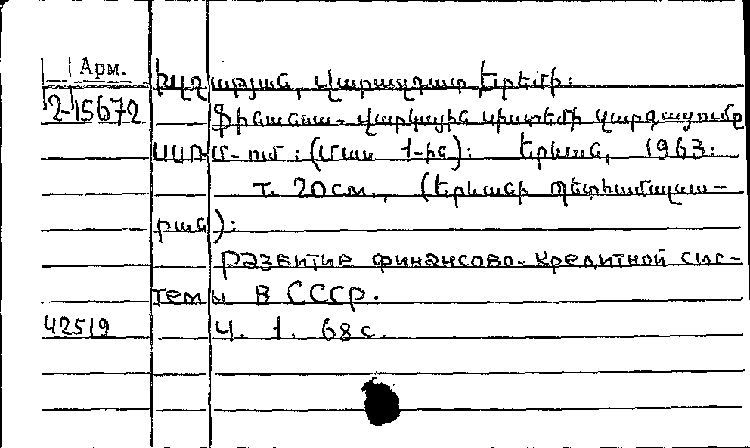 Арм.
Վարազդատ Երեմի:
2-15672 Ֆինանսա-վարկային սիստեմի զարգացումը
ՍՍՌՄ-ում: (Մաս 1-ին): Երևան, 1963:
т. 20см., (Երևանի պետհամալսա-
րան):
Развитие финансово-кредитной сис-
темы в СССР.
42519 Ч. 1. 68с.